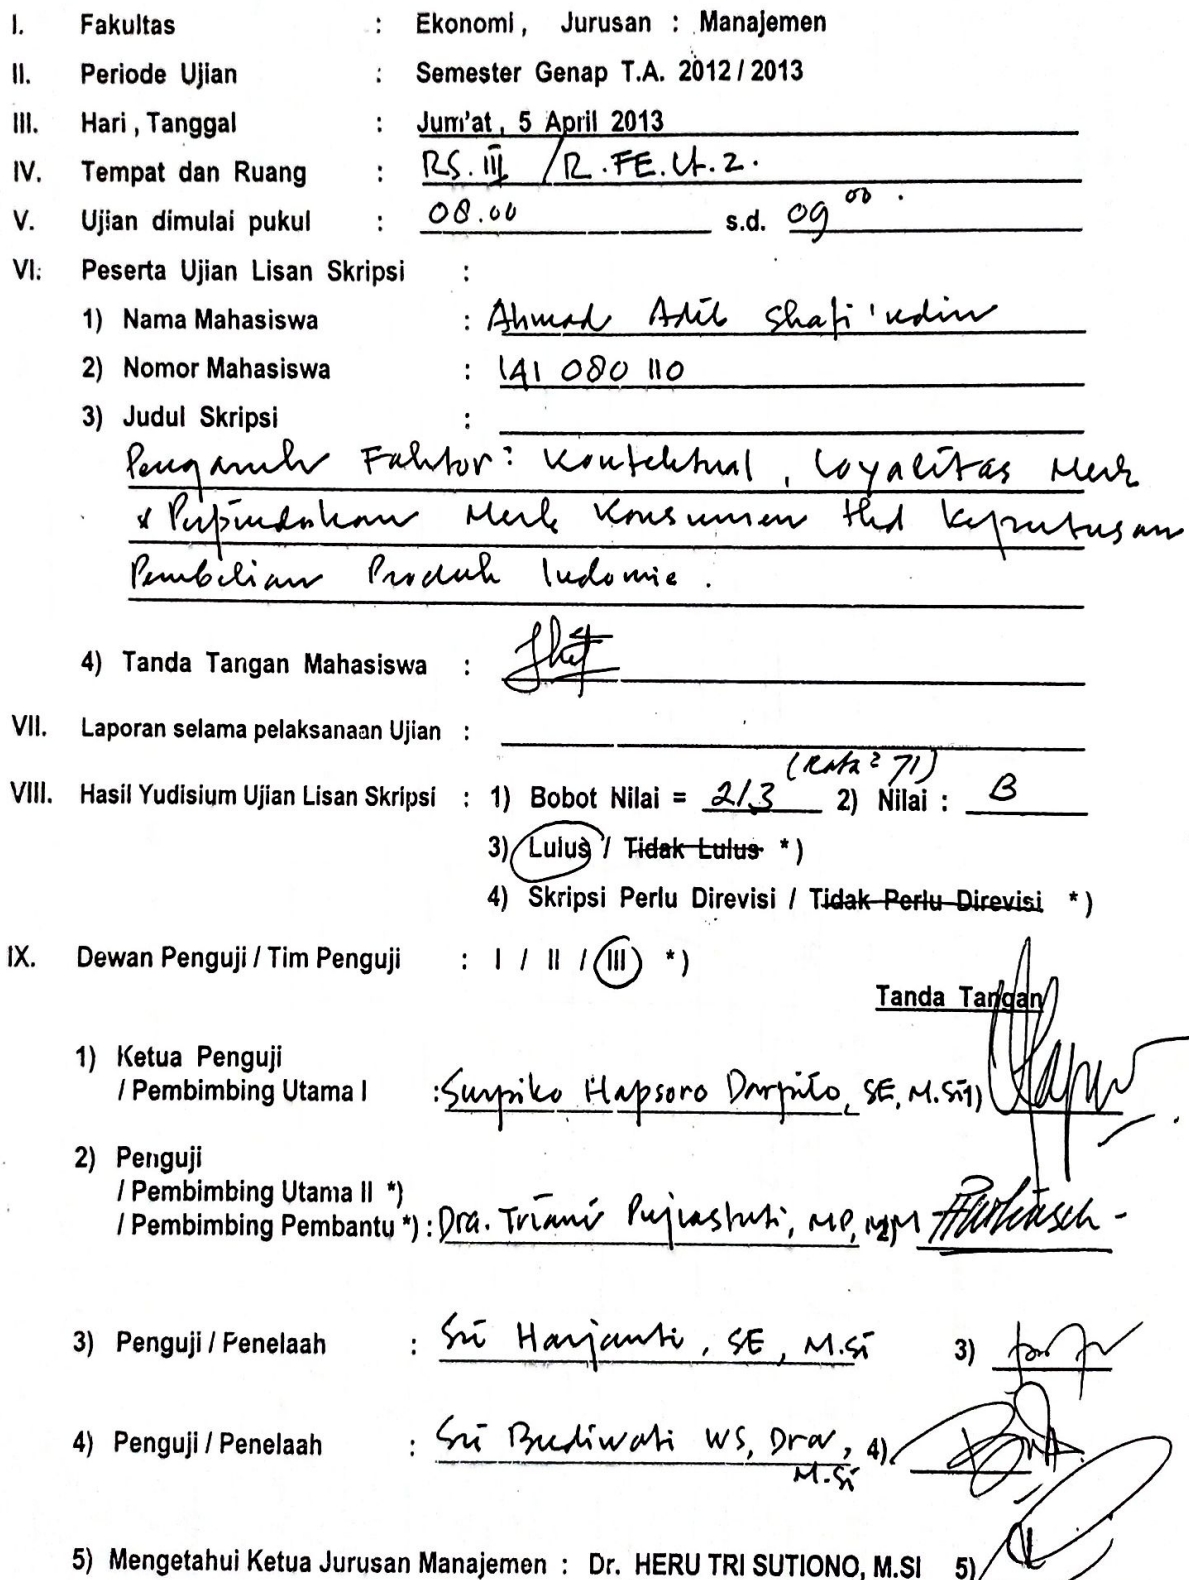 I. Fakultas : Ekonomi, Jurusan : Manajemen
II. Periode Ujian : Semester Genap T.A. 2012 / 2013
III. Hari , Tanggal : Jum'at , 5 April 2013
IV. Tempat dan Ruang : RS. III / R. FE. Lt. 2.
V. Ujian dimulai pukul : 08.00 s.d. 09 00 .
VI. Peserta Ujian Lisan Skripsi :
1) Nama Mahasiswa : Ahmad Adib Shafi'udin
2) Nomor Mahasiswa : 141 080 110
3) Judul Skripsi :
Pengaruh Faktor2 Kontekstual, Loyalitas Merk
& Perpindahan Merk Konsumen thd Keputusan
Pembelian Produk Indomie .
4) Tanda Tangan Mahasiswa :
VII. Laporan selama pelaksanaan Ujian :
(Rata2 71)
VIII. Hasil Yudisium Ujian Lisan Skripsi : 1) Bobot Nilai = 213 2) Nilai : B
3) Lulus / Tidak Lulus *)
4) Skripsi Perlu Direvisi / Tidak Perlu Direvisi *)
IX. Dewan Penguji / Tim Penguji : I / II / III *)
Tanda Tangan
1) Ketua Penguji
/ Pembimbing Utama I : Surpiko Hapsoro Darpito, SE, M.Si 1)
2) Penguji
/ Pembimbing Utama II *)
/ Pembimbing Pembantu *) : Dra. Triani Pujiastuti, MP, MM 2)
3) Penguji / Penelaah : Sri Harjanti, SE, M.Si 3)
4) Penguji / Penelaah : Sri Budiwati WS, Dra, 4)
M.Si
5) Mengetahui Ketua Jurusan Manajemen : Dr. HERU TRI SUTIONO, M.SI 5)